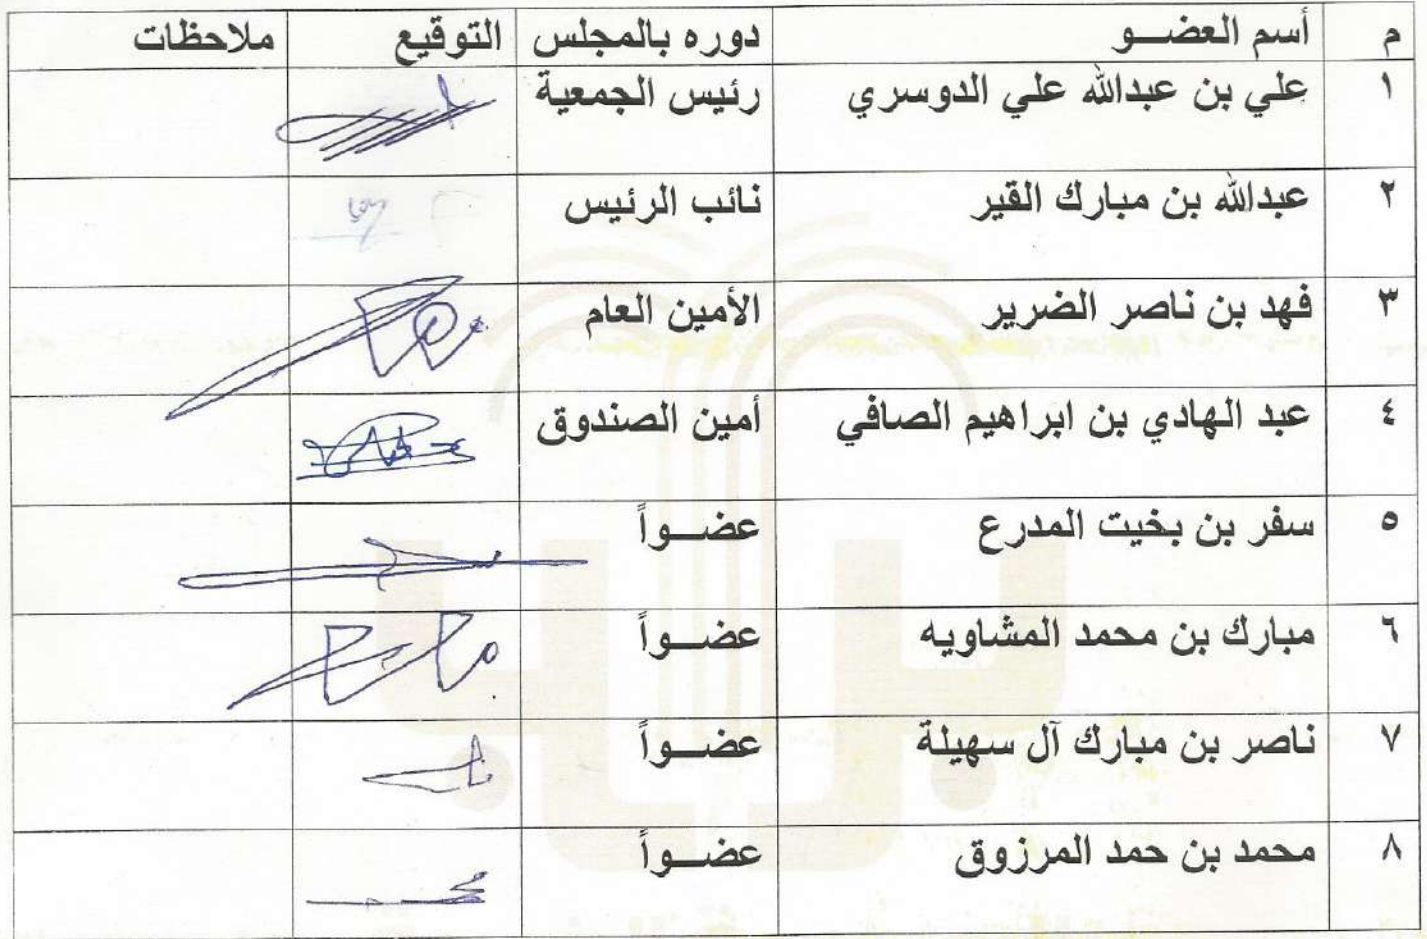 م أسم العضـــو دوره بالمجلس التوقيع ملاحظات
١ علي بن عبدالله علي الدوسري رئيس الجمعية
٢ عبدالله بن مبارك القير نائب الرئيس
٣ فهد بن ناصر الضرير الأمين العام
٤ عبد الهادي بن ابراهيم الصافي أمين الصندوق
٥ سفر بن بخيت المدرع عضـــواً
٦ مبارك بن محمد المشاويه عضـــواً
٧ ناصر بن مبارك آل سهيلة عضـــواً
٨ محمد بن حمد المرزوق عضـــواً